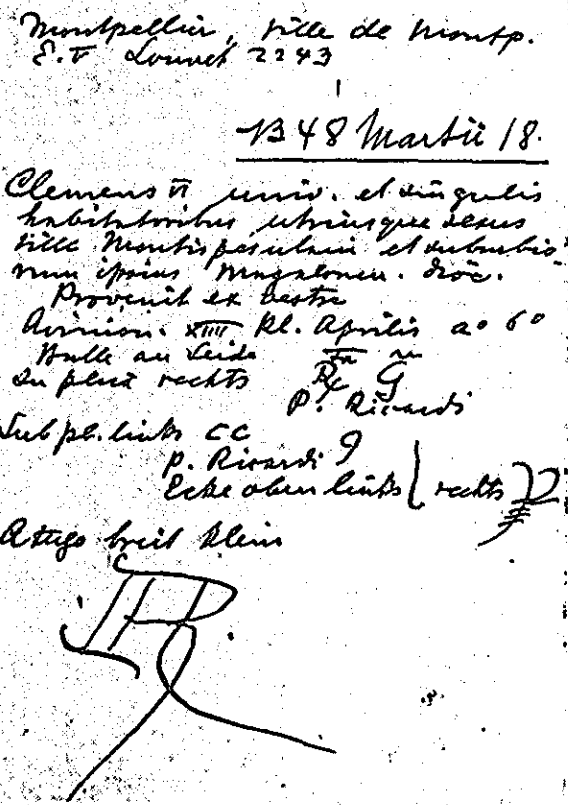 Montpellier, ville de Montp.
E.V Louvet 2243
1348 Martii 18.
Clemens VI univ. et singulis
habitatoribus utriusque sexus
ville Montispesulani et suburbio
rum ipsius Magalonen. dioc.
Provenit ex vestre
Avinion. XIIII Kl. Aprilis a° 6°
Bulle an Seide
Su plica rechts Rx G
P. Ricardi
Sub pl. links CC
P. Ricardi
Ecke oben links rechts
Attergo breit klein